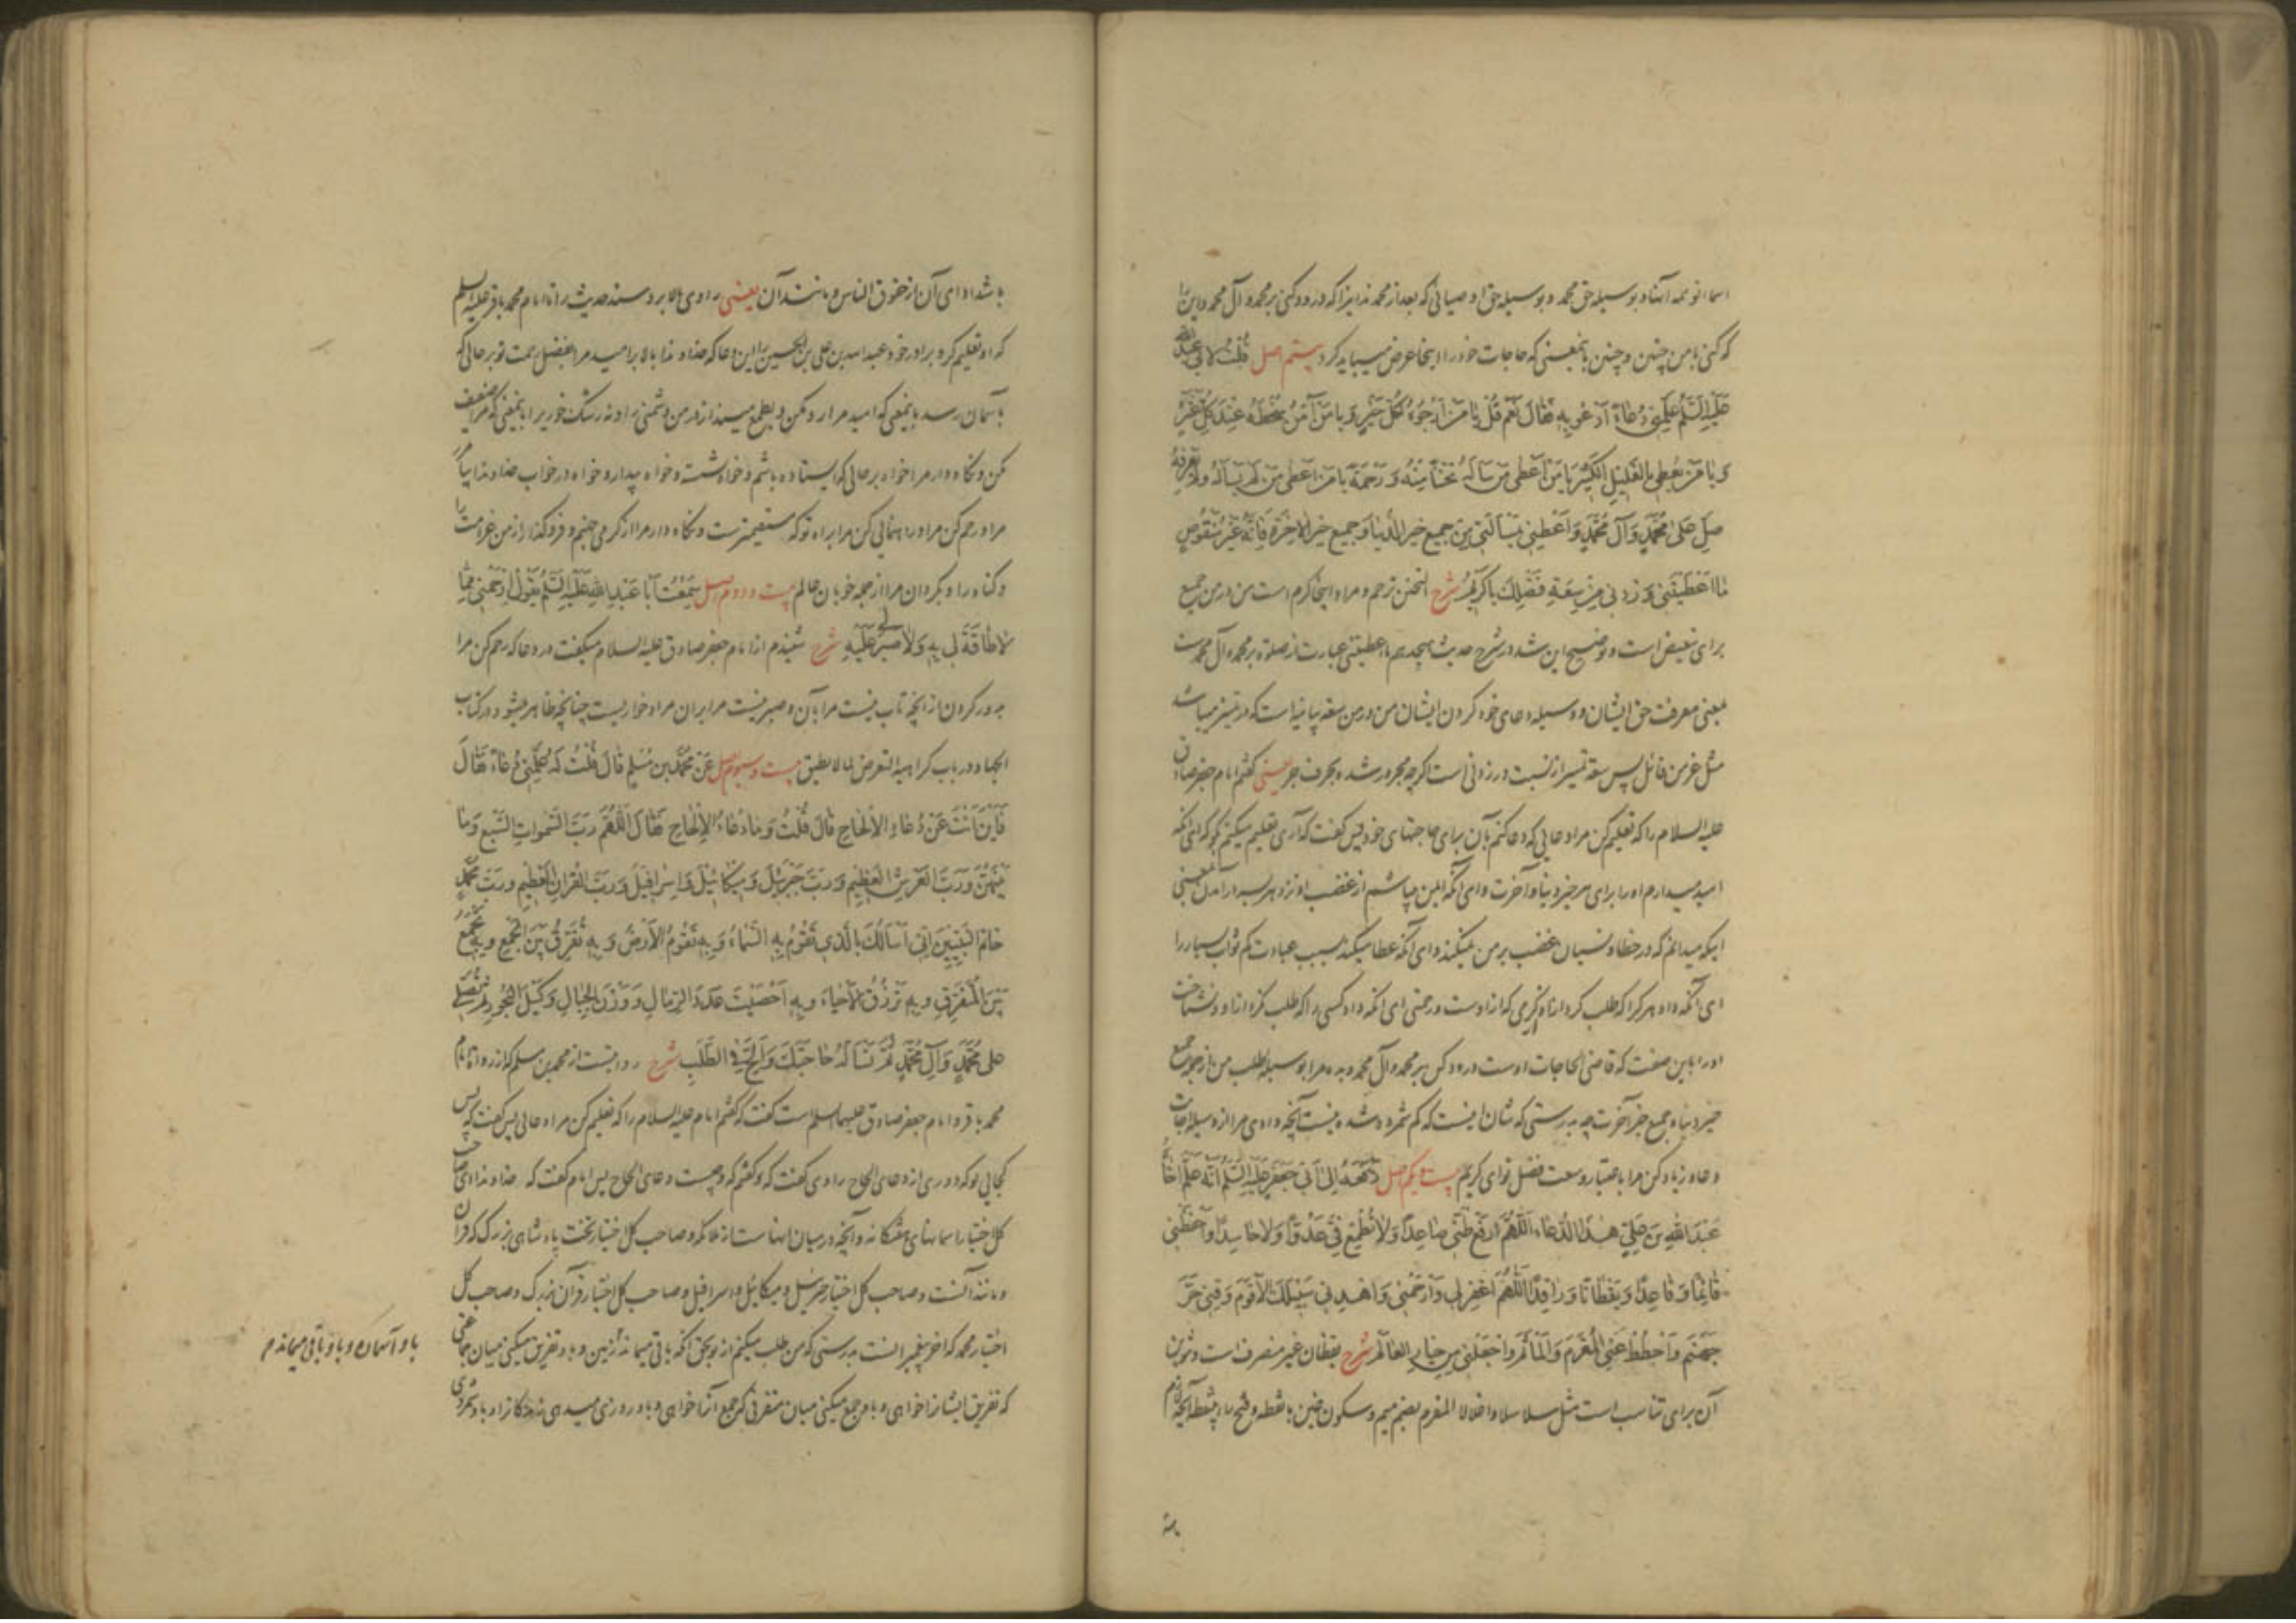 اسما تو همه آنها و بوسیله حق محمد و بوسیله حق اوصیائی که بعد از محمدند اینرا که درود کنی بر محمد و آل محمد و این را
که کنی با من چنین و چنین بانمعنی که حاجات خود را اینجا عرض میباید کرد بیستم اصل قلت لابی عبد الله
علیه السلم علمنی دعاء ادعو به فقال نعم قل یا من ارجوه لکل خیر و یا من آمن سخطه عند کل عثرة
و یا من یعطی بالقلیل الکثیر یا من اعطی من سأله تحننا منه و رحمة یا من اعطی من لم یسأله ولم یعرفه
صل علی محمد و آل محمد و اعطنی بمسألتی من جمیع خیر الدنیا و جمیع خیر الاخرة فانه غیر منقوص
ما اعطیتنی و زدنی من سعة فضلک یا کریم شرح التحنن ترحم و مراد اینجا کرم است من در من جمیع
برای تبعیض است و توضیح این شد در شرح حدیث هیجدهم ما اعطیتنی عبارت از صلوة بر محمد و آل محمدست
بمعنی معرفت حق ایشان و وسیله دعای خود کردن ایشان من در من سعة بیانیه است که در تمییز میباشد
مثل عز من قائل پس سعة تمییز از نسبت در زدنی است اگرچه مجرور شده بحرف جر یعنی گفتم امام جعفر صادق
علیه السلام را که تعلیم کن مرا دعایی که دعا کنم بآن برای حاجتهای خود پس گفت که آری تعلیم میکنم بگو که ای آنکه
امید میدارم او را برای هر خیر دنیا و آخرت و ای آنکه ایمن میباشم از غضب او نزد هر بسر درآمدن بمعنی
اینکه میدانم که در خطا و نسیان غضب بر من نمیکند و ای آنکه عطا میکند بسبب عبادت کم ثواب بسیار را
ای آنکه داد هر کرا که طلب کرد از او کرمی که از اوست و رحمتی ای آنکه داد کسی را که طلب نکرد از او و نشناخت
او را باین صفت که قاضی الحاجات اوست درود کن بر محمد و آل محمد و بده مرا بوسیله طلب من از جمیع
خیر دنیا و جمیع خیر آخرت چه بدرستی که شان اینست که کم شمرده شده نیست آنچه دادی مرا از وسیله اجابت
دعا و زیاد کن مرا باعتبار وسعت فضل تو ای کریم بیست و یکم اصل رفعه الی ابی جعفر علیه السلم انه علم اخاه
عبد الله بن علی هذا الدعاء اللهم ارفع ظنی صاعدا ولا تطمع فی عدوا ولا حاسدا و احفظنی
قائما و قاعدا و یقظانا و راقدا اللهم اغفر لی و ارحمنی و اهدنی سبیلک الاقوم و قنی حر
جهنم و احطط عنی المغرم و المأثم و اجعلنی من خیار العالم شرح یقظان غیر منصرف است و تنوین
آن برای تناسب است مثل سلاسلا و اغلالا المغرم بضم میم و سکون غین با نقطه و فتح راء بینقطه آنچه لازم
باشد ادای آن از حقوق الناس و مانند آن یعنی راوی بالا برد سند حدیث را تا امام محمد باقر علیه السلم
که او تعلیم کرد برادر خود عبد الله بن علی بن الحسین را این دعا که خداوندا بالا بر امید مرا بفضل رحمت تو بر حالی که
بآسمان رسد بانمعنی که امید مرا رد مکن و بطمع مینداز در من دشمنی را و نه رشک خوریرا بانمعنی که مرا ضعیف
مکن و نگاه دار مرا خواه بر حالی که ایستاده باشم و خواه نشسته و خواه بیدار و خواه در خواب خداوندا بیامرز
مرا و رحم کن مرا و راهنمایی کن مرا براه تو که مستقیمترست و نگاه دار مرا از گرمی جهنم و فرو گذار از من غرامت را
و گناه را و بگردان مرا از جمله خوبان عالم بیست و دوم اصل سمعت ابا عبد الله علیه السلم یقول ارحمنی مما
لا طاقة لی به ولا صبر لی علیه شرح شنیدم از امام جعفر صادق علیه السلام میگفت در دعا که رحم کن مرا
بدور کردن از آنچه تاب نیست مرا بآن و صبر نیست مرا بران مراد خواریست چنانچه ظاهر میشود در کتاب
الجهاد در باب کراهیة التعرض لما لا یطیق بیست و سیوم اصل عن محمد بن مسلم قال قلت له علمنی دعاء فقال
فاین انت عن دعاء الالحاح قال قلت وما دعاء الالحاح فقال اللهم رب السموات السبع وما
بینهن و رب العرش العظیم و رب جبرئیل و میکائیل و اسرافیل و رب القرآن العظیم و رب محمد
خاتم النبیین انی اسألک بالذی تقوم به السماء و به تقوم الارض و به تفرق بین الجمع و به تجمع
بین المتفرق و به ترزق الاحیاء و به احصیت عدد الرمال و وزن الجبال و کیل البحور ثم تصلی
علی محمد و آل محمد ثم تسأله حاجتک و الح فی الطلب شرح روایتست از محمد بن مسلم که از رواة امام
محمد باقر و امام جعفر صادق علیهما السلم است گفت که گفتم امام علیه السلام را که تعلیم کن مرا دعائی پس گفت که پس
کجایی تو که دوری از دعای الحاح راوی گفت که گفتم که و چیست دعای الحاح پس امام گفت که خداوندا ای صاحب
کل اختیار آسمانهای هفتگانه و آنچه در میان آنهاست از ملائکه و صاحب کل اختیار تخت پادشاهی بزرگ که قرآن
و مانند آنست و صاحب کل اختیار جبرئیل و میکائیل و اسرافیل و صاحب کل اختیار قرآن بزرگ و صاحب کل
اختیار محمد که آخر پیغمبرانست بدرستی که من طلب میکنم از تو بحق آنکه باقی میماند زمین و باو تفریق میکنی میان جماعتی
که تفریق ایشانرا خواهی و باو جمع میکنی میان متفرقی که جمع آنرا خواهی و باو روزی میدهی زندگانرا و باو شمردی
باو آسمان و باو باقی میماند م